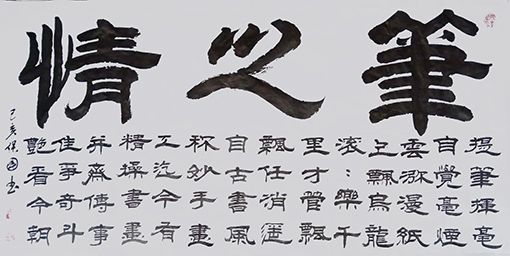 筆之情
提筆揮毫
自覺毫煙
雲弥漫紙
上飄烏龍
滾:樂千
里才管飄
飄任消遥
自古書風
称妙手畫
工迄今有
精操書畫
并齋傳事
佳爭奇斗
艷看今朝
己亥保國書